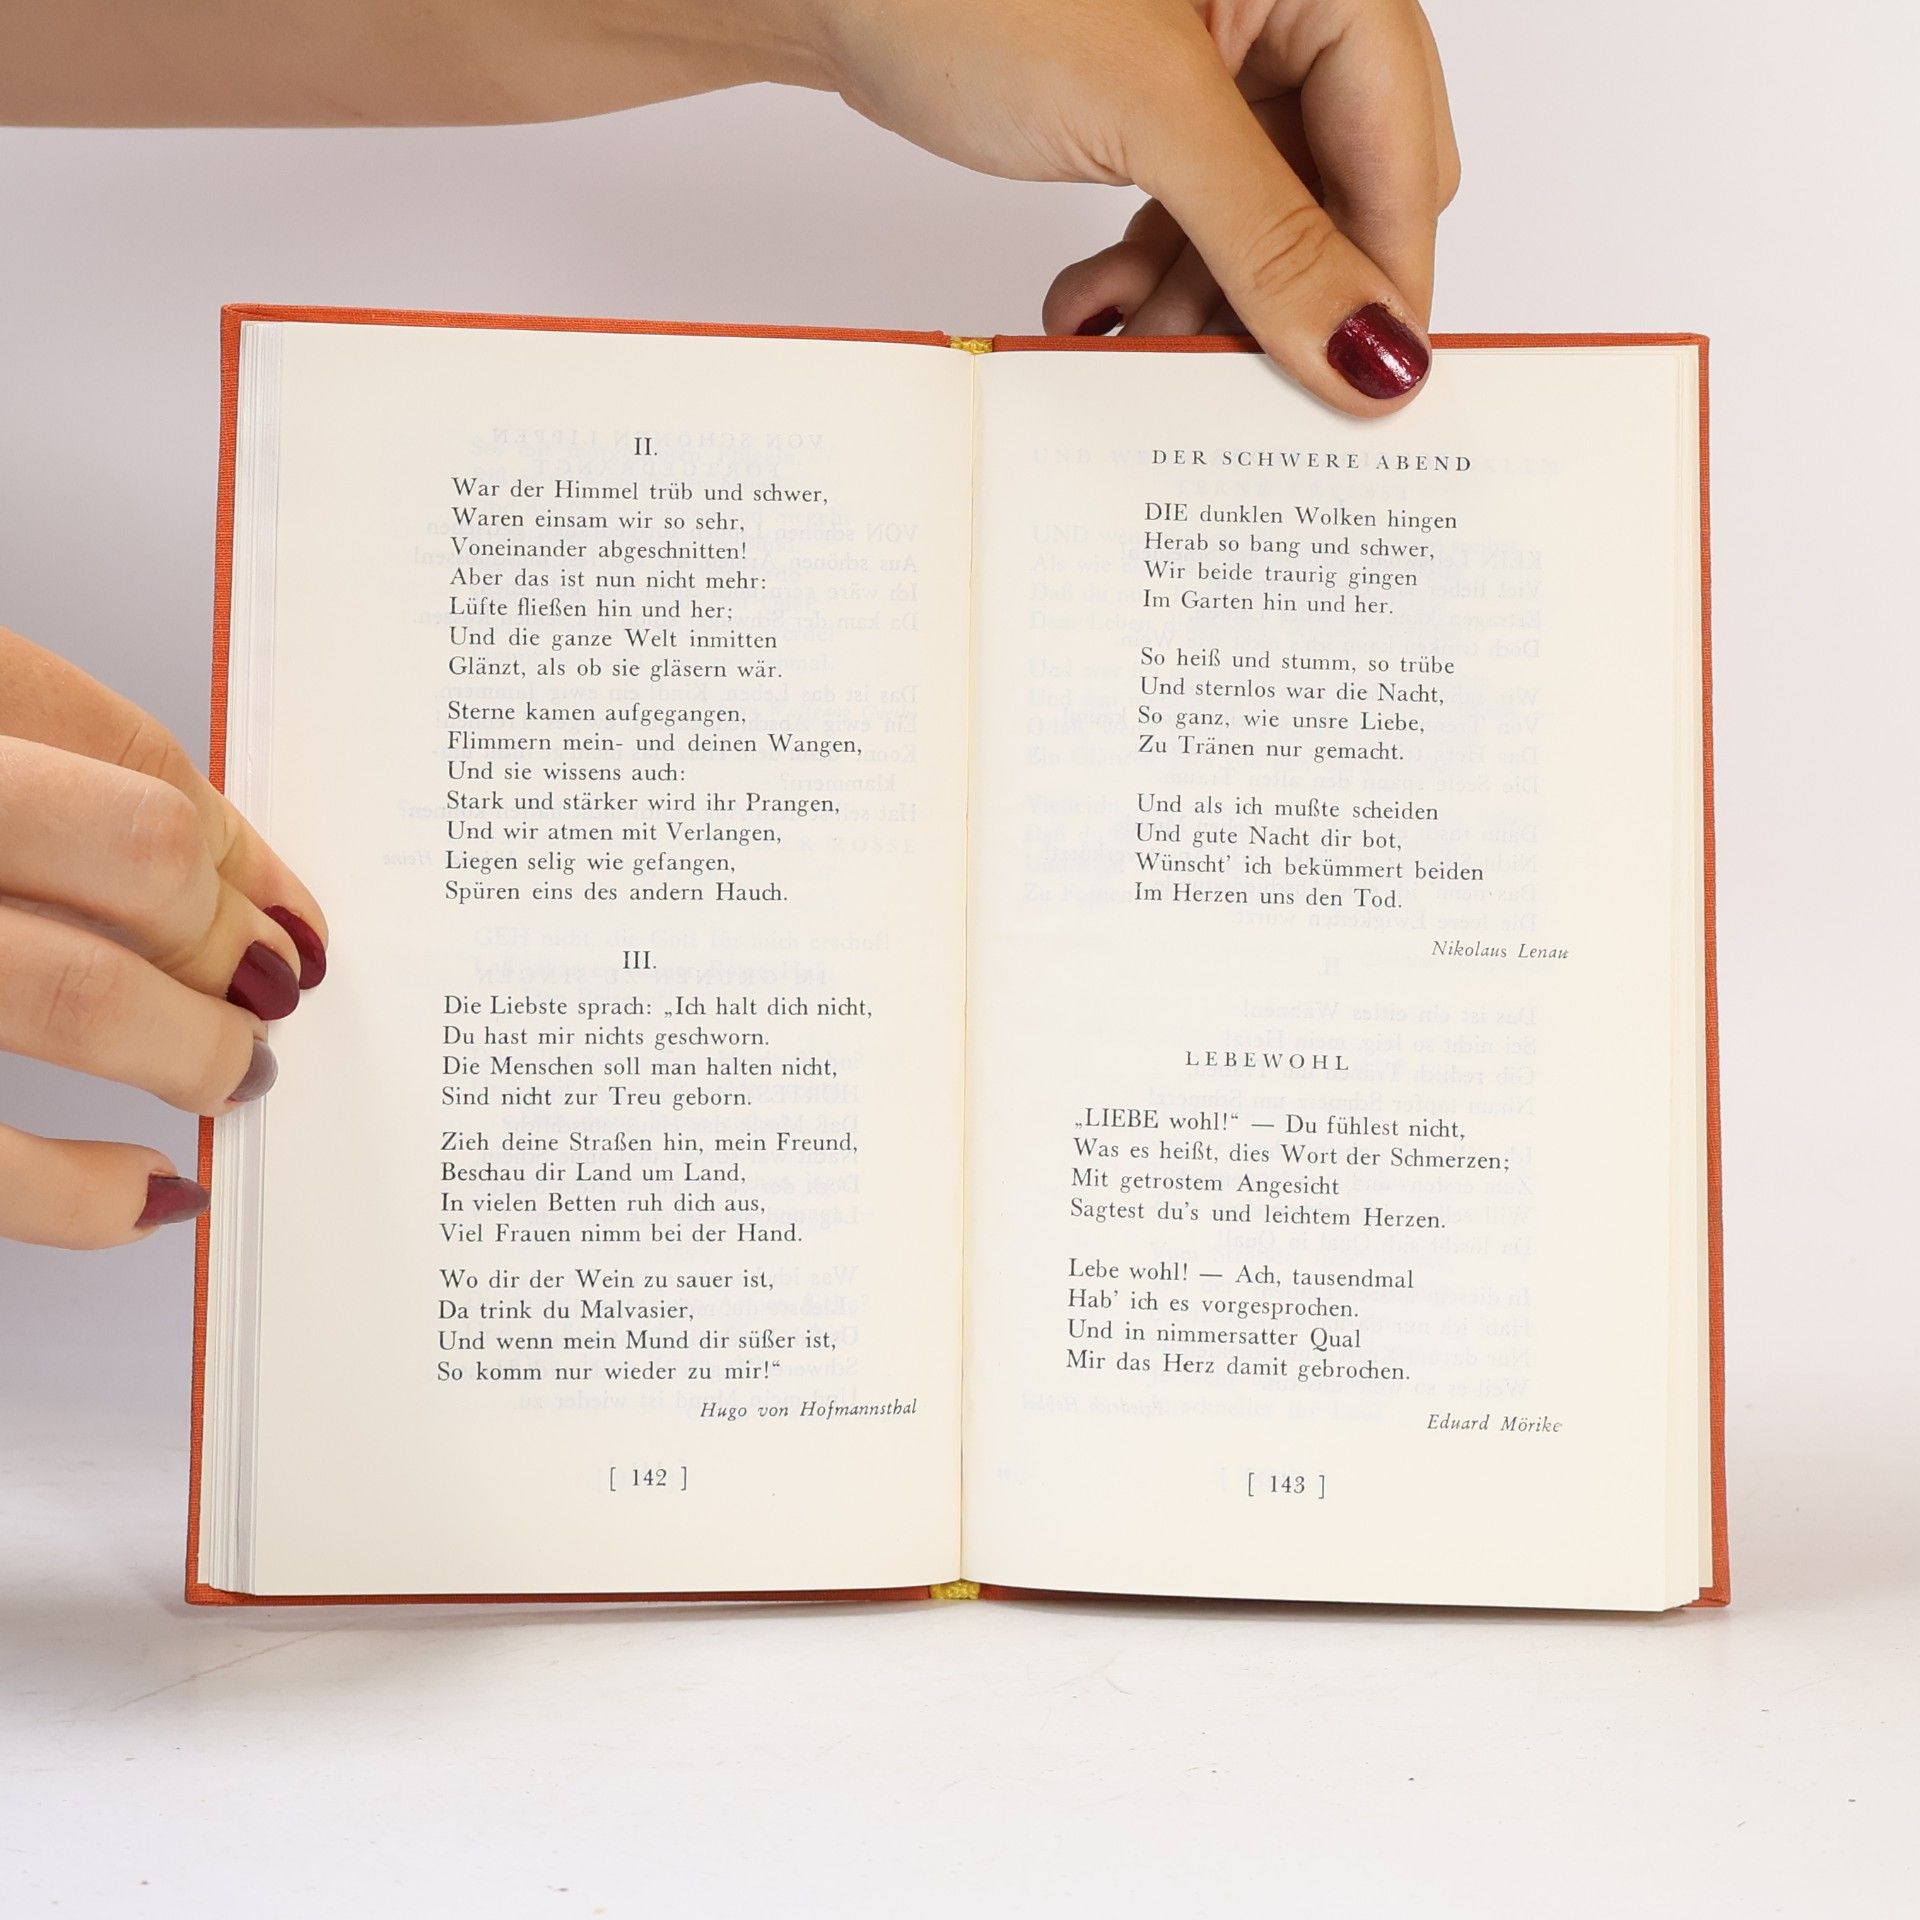 II.
War der Himmel trüb und schwer,
Waren einsam wir so sehr,
Voneinander abgeschnitten!
Aber das ist nun nicht mehr:
Lüfte fließen hin und her;
Und die ganze Welt inmitten
Glänzt, als ob sie gläsern wär.
Sterne kamen aufgegangen,
Flimmern mein- und deinen Wangen,
Und sie wissens auch:
Stark und stärker wird ihr Prangen,
Und wir atmen mit Verlangen,
Liegen selig wie gefangen,
Spüren eins des andern Hauch.
III.
Die Liebste sprach: „Ich halt dich nicht,
Du hast mir nichts geschworn.
Die Menschen soll man halten nicht,
Sind nicht zur Treu geborn.
Zieh deine Straßen hin, mein Freund,
Beschau dir Land um Land,
In vielen Betten ruh dich aus,
Viel Frauen nimm bei der Hand.
Wo dir der Wein zu sauer ist,
Da trink du Malvasier,
Und wenn mein Mund dir süßer ist,
So komm nur wieder zu mir!“
Hugo von Hofmannsthal
[ 142 ]
DER SCHWERE ABEND
DIE dunklen Wolken hingen
Herab so bang und schwer,
Wir beide traurig gingen
Im Garten hin und her.
So heiß und stumm, so trübe
Und sternlos war die Nacht,
So ganz, wie unsre Liebe,
Zu Tränen nur gemacht.
Und als ich mußte scheiden
Und gute Nacht dir bot,
Wünscht’ ich bekümmert beiden
Im Herzen uns den Tod.
Nikolaus Lenau
LEBEWOHL
„LIEBE wohl!“ — Du fühlest nicht,
Was es heißt, dies Wort der Schmerzen;
Mit getrostem Angesicht
Sagtest du’s und leichtem Herzen.
Lebe wohl! — Ach, tausendmal
Hab’ ich es vorgesprochen.
Und in nimmersatter Qual
Mir das Herz damit gebrochen.
Eduard Mörike
[ 143 ]